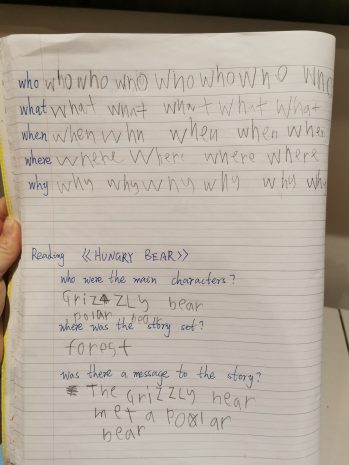 who who who who who who who who
what what what what what what
when when whn when when when
where where where where where
why why why why why why why
Reading 《HUNGRY BEAR》
who were the main characters?
Grizzly bear
polar bear
where was the story set?
forest
was there a message to the story?
The Grizzly bear
met a polar
bear